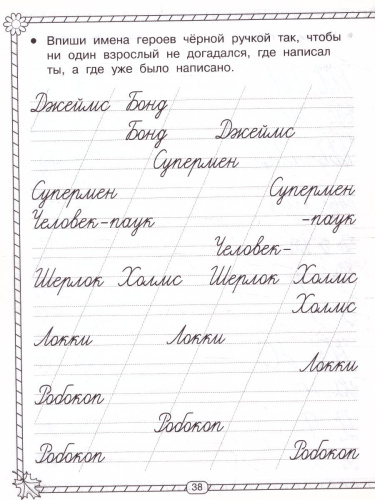 Впиши имена героев чёрной ручкой так, чтобы
ни один взрослый не догадался, где написал
ты, а где уже было написано.
Джеймс Бонд
Бонд Джеймс
Супермен
Супермен Супермен
Человек-паук -паук
Человек-
Шерлок Холмс Шерлок Холмс
Холмс
Локки Локки
Локки
Робокоп
Робокоп
Робокоп Робокоп
38